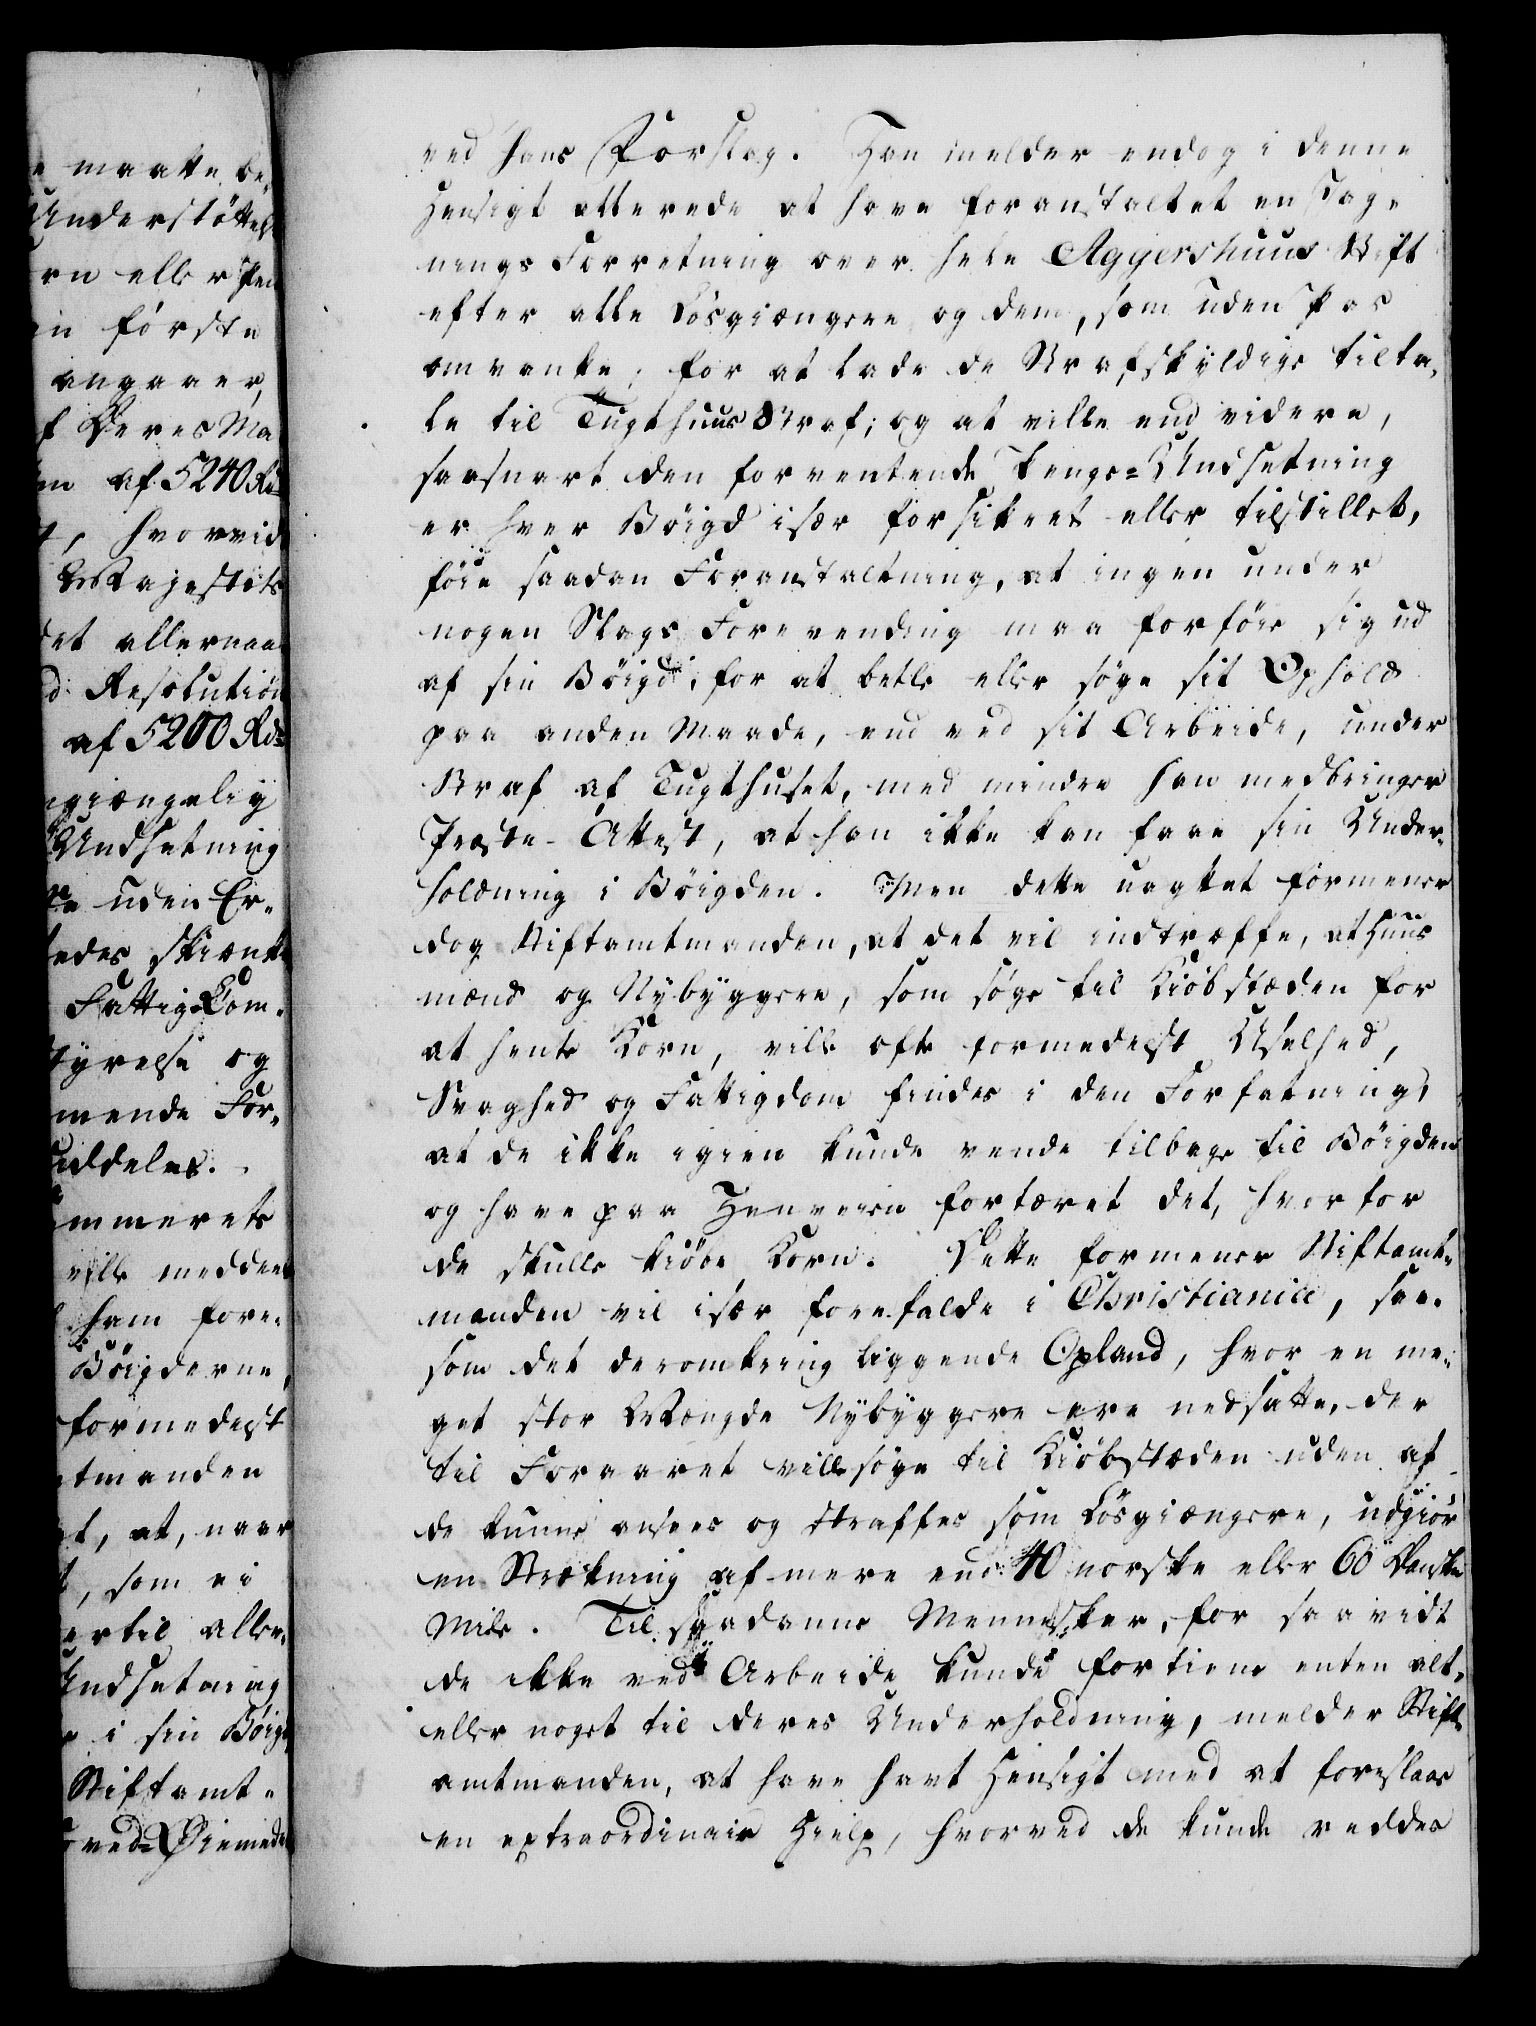 maatte be-
Understøttel
rn eller Pen
in første
angaaer,
f Deres Ma
m af 5240 Rd
hvorvid
Majestets
det allernaa
d Resolution
af 5200 Rd
giængelig
Undsætning
uden Er-
edes skiænk
Fattig-Com-
tyrelse og
mmende For-
uddeles.
ammerets
ville meddeel
ham fore-
Böigderne,
formedelst
tmanden
t, at, naar
som ei
ertil aller-
Undsætning
i sin Böigd
Stiftamt-
ved Øiemede
ved hans Forslag. Han melder endog i denne
Hensigt allerede at have foranstaltet en Tage
nings Forretning over hele Aggershuus Stift
efter alle Løsgiængere og dem, som uden Pas
omvanke, for at lade de Strafskyldige tilta-
le til Tugthuus Straf; og at ville end videre,
saasnart den forventende Penge-Undsetning
er hver Böigd især forsikret eller tilstillet,
föie saadan Foranstaltning, at ingen under
nogen Slags Forevending maa forföie sig ud
af sin Böigd, for at betle eller søge sit Ophold
paa anden Maade, end ved sit Arbeide, under
Straf af Tugthuset, med mindre han medbringer
Præste-Attest, at han ikke kan faae sin Under-
holdning i Böigden. Men dette uagtet formener
dog Stiftamtmanden, at det vil indtræffe, at Huus
mænd og Nybyggere, som søge til Kiöbstæden for
at hente Korn, ville ofte formedelst Uselhed,
Svaghed og Fattigdom findes i den Forfatning,
at de ikke igien kunde vende tilbage til Böigden
og have paa Henveien fortæret det, hvorfor
de skulle kiöbe Korn. Dette formener Stiftamt-
manden vil især forefalde i Christiania, saa-
som det deromkring liggende Opland, hvor en me-
get stor Mængde Nybyggere ere nedsatte, der
til Foraaret ville søge til Kiöbstæden uden at
de kunne ansees og straffes som Løsgiængere, udgiör
en Strækning af mere end 40 norske eller 60 Danske
Mile. Til saadanne Mennesker, for saavidt
de ikke ved Arbeide kunde fortiene enten alt
eller noget til deres Underholdning, melder Stift
amtmanden, at have havt Hensigt med at foreslaae
en extraordinair Hielp, hvorved de kunde reddes